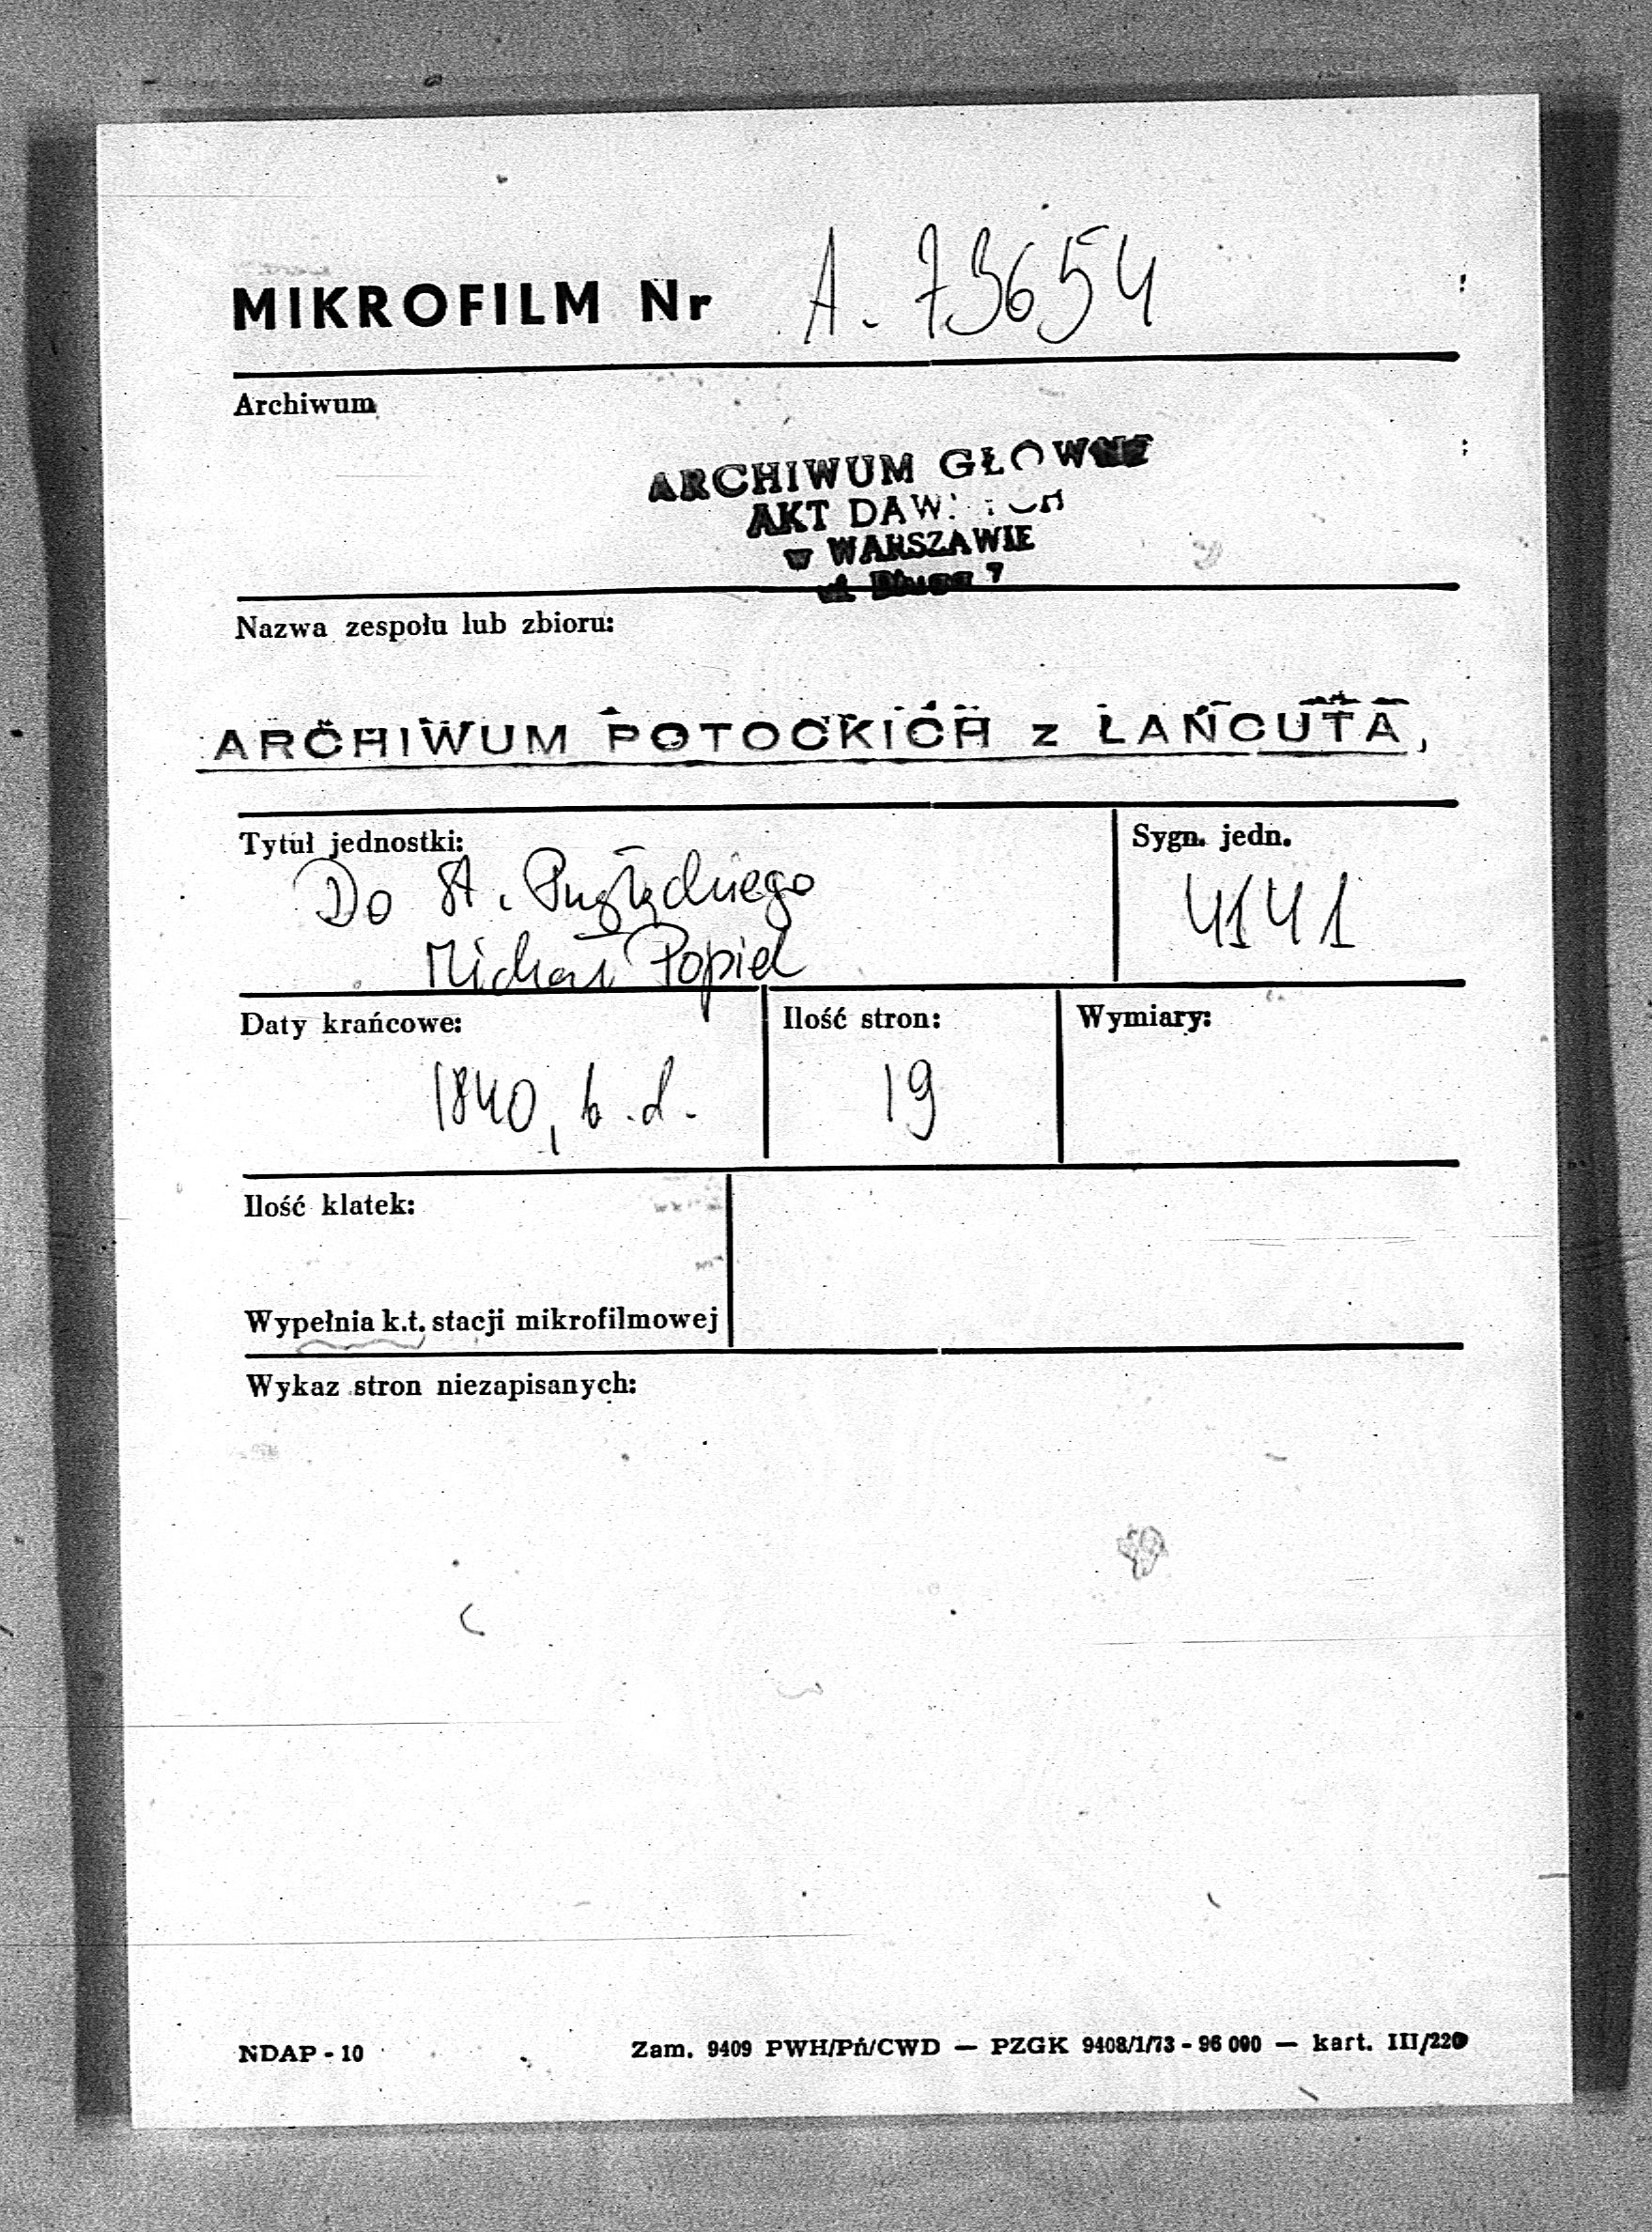 MIKROFILM Nr A. 73654
Archiwum
ARCHIWUM GŁÓWNE
AKT DAWNYCH
w WARSZAWIE
ul. Długa 7
Nazwa zespołu lub zbioru:
ARCHIWUM POTOCKICH z ŁAŃCUTA,
Tytuł jednostki:
Sygn. jedn.
Do St.
Michał Popiel
4141
Daty krańcowe:
Ilość stron:
Wymiary:
1840, b.d.
19
Ilość klatek:
Wypełnia k.t. stacji mikrofilmowej
Wykaz stron niezapisanych:
NDAP - 10
Zam. 9409 PWH/Pń/CWD — PZGK 9408/1/73 - 96 000 — kart. III/220